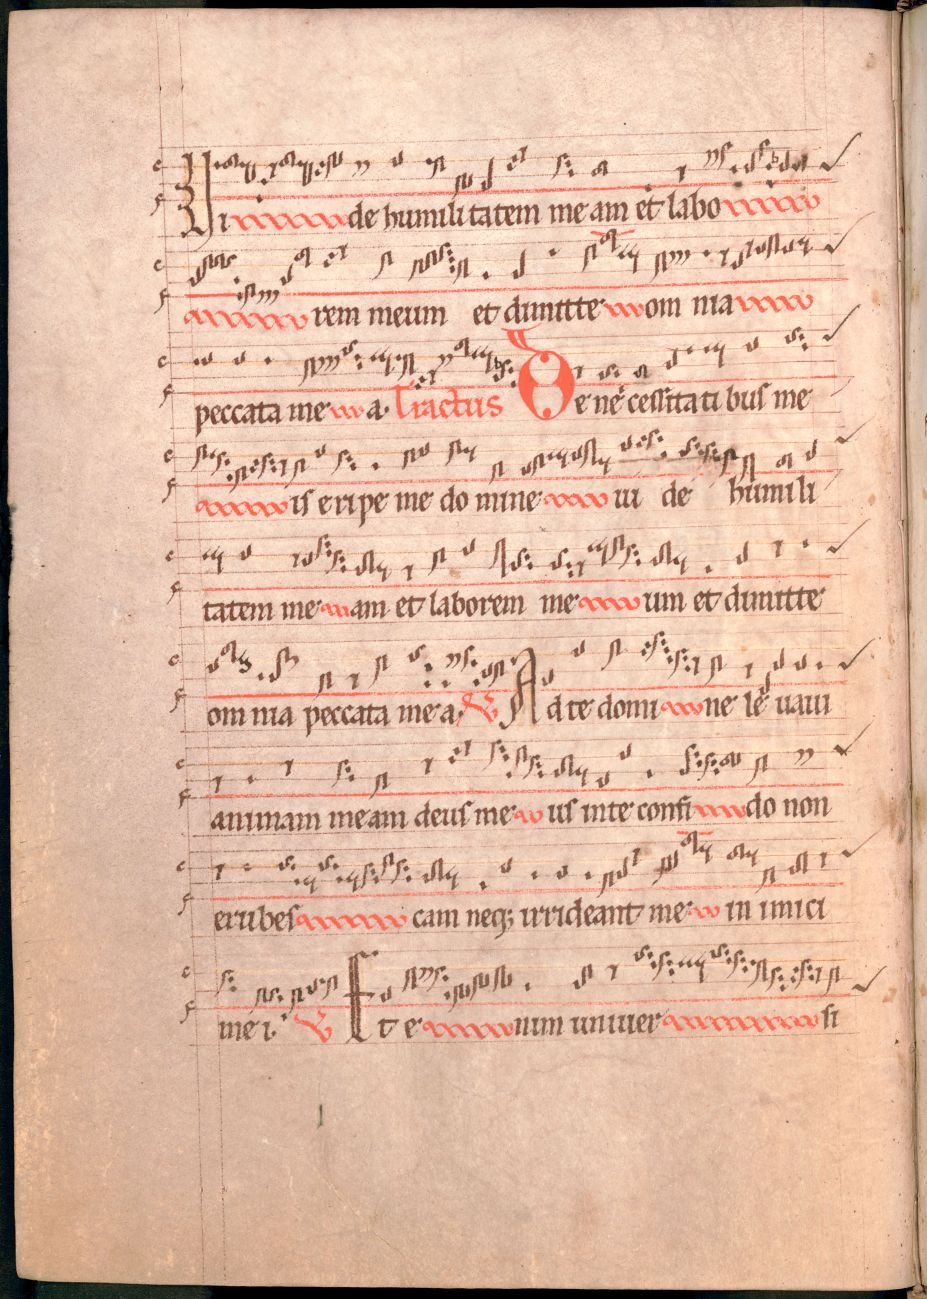 Vi de humili tatem me am et labo
rem meum et dimitte om nia
peccata me a. Tractus De ne cessitati bus me
is eripe me do mine ui de humili
tatem me am et laborem me um et dimitte
om nia peccata me a. V Ad te domi ne le uaui
animam meam deus me us inte confi do non
erubes cam neq; irrideant me in imici
me i. V Et e nim uniuer si